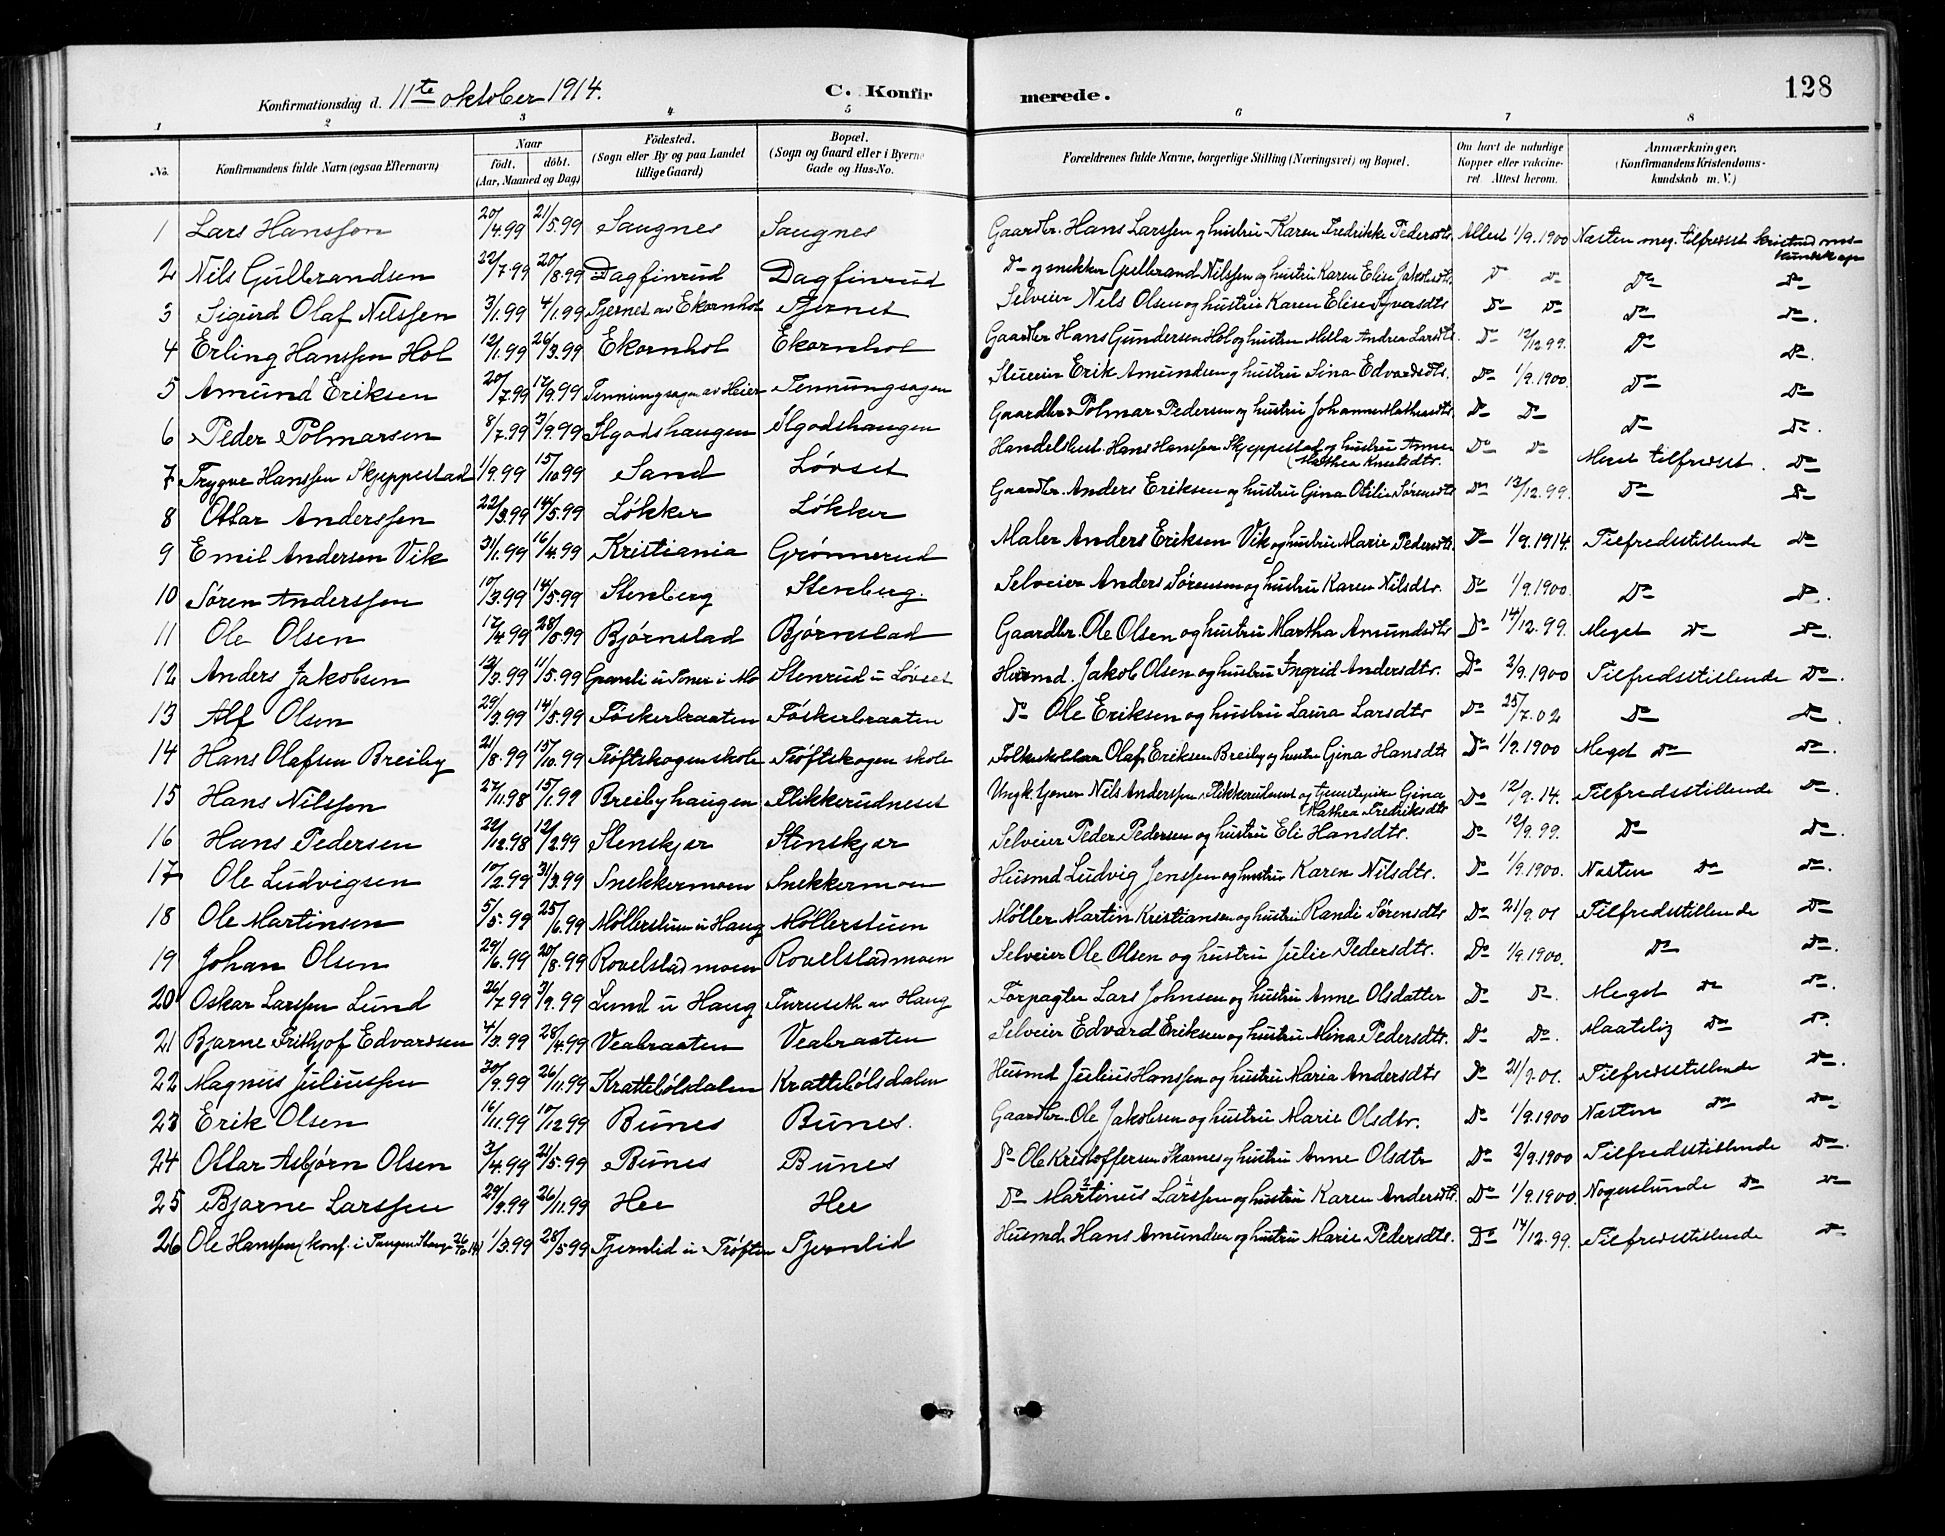 128
Konfirmationsdag d. 11te oktober 1914. C. Konfirmerede.
1 2 3 4 5 6 7 8
No. Konfirmandens fulde Navn (ogsaa Efternavn) Naar født. døbt. (Aar, Maaned og Dag) Födested. (Sogn eller By og paa Landet tillige Gaard) Bopæl. (Sogn og Gaard eller i Byerne Gade og Hus-No. Forældrenes fulde Navne, borgerlige Stilling (Næringsvei) og Bopæl. Om havt de naturlige Kopper eller vaccineret. Attest herom. Anmærkninger. (Konfirmandens Kristendomskundskab m. V.)
1 Lars Hanssen 20/4.99 21/5.99 Saugnes Saugnes Gaardbr. Hans Larssen og hustru Karen Fredrikke Pedersdtr. Attest 1/9.1900 Næsten meg. tilfredsst kristendomskundskap
2 Nils Gulbrandsen 22/7.99 20/8.99 Dagfinrud Dagfinrud Do og snekker Gulbrand Nilssen og hustru Karen Elise Jakobsdtr. Do Do Do Do
3 Sigurd Olaf Nilssen 3/1.99 4/1.99 Tjernet av Ekornhol Tjernet Selveier Nils Olsen og hustru Karen Elise Syversdtr Do Do Do Do.
4 Erling Hanssen Hol 12/1.99 26/3.99 Ekornhol Ekornhol Gaardbr Hans Gundersen Hol og hustru Milla Andrea Larsdtr. Do 12/12 99. Do Do.
5 Amund Eriksen 20/7.99 17/9.99 Tenningsagen av Heier Tenningsagen Erik Amundsen og hustru Lina Edvardsdtr. Do 1/9.1900. Do Do
6 Peder Polmarsen 8/7.99 3/9.99 Ilgodshaugen Ilgodshaugen Gaardbr Polmar Pedersen og hustru Johanne Do Do Do Do.
7 Trygve Hanssen Skjeppestad 1/9.99 15/10.99 Sand Løvset Handelsbest. Hans Hanssen Skjeppestad og hustru Anne Mathea Knutsdtr. Do Do Meget tilfredsst. Do
8 Ottar Anderssen 22/3.99 14/5.99 Løkker Løkker Gaardbr. Anders Eriksen og hustru Gina Otilie Sørensdtr Do 12/12.99. Do Do
9 Emil Andersen Vik 31/1.99 16/4.99 Kristiania Grønnerud Maler Anders Eriksen Vik og hustru Marie Pedersdtr. Do 1/9.1914. Tilfredsstillende Do
10 Søren Anderssen 10/3.99 14/5.99 Stenberg Stenberg. Selveier Anders Sørensen og hustru Karen Nilsdtr. Do 1/9.1900. Do Do.
11 Ole Olsen 17/4.99 28/5.99 Bjørnstad Bjørnstad Gaardbr. Ole Olsen og hustru Martha Amundsdtr Do 14/12.99. Meget Do Do.
12 Anders Jakobsen 12/3.99 11/5.99 Granli u Toner i Mo Stenrud u Løvset Husmd. Jakob Olsen og hustru Ingrid Andersdtr. Do 2/9.1900 Tilfredsstillende Do.
13 Alf Olsen 29/3.99 14/5.99 Föskerbraaten Föskerbraaten Do Ole Eriksen og hustru Laura Larsdtr Do 25/7.02 Do Do.
14 Hans Olafsen Breiby 21/8.99 15/10.99 Trøftskogen skole Trøftskogen skole Folkeskolelærer Olaf Eriksen Breiby og hustru Gina Hansdtr Do 1/9.1900 Meget Do Do.
15 Hans Nilssen 27/11.98 15/1.99 Breibyhaugen Flikkerudneset Ungk. tjener Nils Anderssen Flikkerudneset og tjenestepike Gina Mathea Fredriksdtr Do 12/9.14. Tilfredsstillende Do.
16 Hans Pedersen 22/12.98 12/2.99 Stenskjær Stenskjær Selveier Peder Pedersen og hustru Eli Hansdtr. Do 12/9.99. Do Do.
17 Ole Ludvigsen 10/2.99 31/3.99 Snekkermoen Snekkermoen Husmd Ludvig Jenssen og hustru Karen Nilsdtr. Do 1/9.1900. Næsten Do Do.
18 Ole Martinsen 5/5.99 25/6.99 Møllerstuen u Haug Møllerstuen Møller Martin Kristiansen og hustru Randi Sørensdtr Do 21/9.01 Tilfredsstillende Do
19 Johan Olsen 29/6.99 20/8.99 Rovelstadmoen Rovelstadmoen Selveier Ole Olsen og hustru Julie Pedersdtr. Do 1/9.1900. Do Do.
20 Oskar Larssen Lund 26/7.99 3/9.99 Lund u Haug Furuseth av Haug Forpagter Lars Johnsen og hustru Anne Olsdatter Do Do. Meget Do Do.
21 Bjarne Frithjof Edvardsen 4/3.99 28/4.99 Veabraaten Veabraaten Selveier Edvard Eriksen og hustru Mina Pedersdtr. Do Do. Maatelig Do Do.
22 Magnus Juliussen 30/9.99 26/11.99 Krattebølsdalen Krattebølsdalen Husmd Julius Hanssen og hustru Maria Andersdtr Do 21/9.01. Tilfredsstillende Do.
23 Erik Olsen 16/11.99 10/12 99 Bunes Bunes. Gaardbr. Ole Jakobsen og hustru Marie Olsdtr. Do 1/9.1900 Næsten Do Do
24 Ottar Asbjørn Olsen 3/4.99 21/5.99 Bunes Bunes Do Ole Kristoffersen Skarnes og hustru Anne Olsdtr Do 2/9.1900 Tilfredsstillende Do.
25 Bjarne Larssen 29/9.99 26/11.99 Hee Hee Do Martinus Larssen og hustru Karen Andersdtr. Do 1/9.1900. Nogenlunde Do Do
26 Ole Hanssen (konf. i Tangen 1/3.99 28/5 99 Tjernlid u Trøften Tjernlid Husmd. Hans Amundsen og hustru Marie Pedersdtr. Do 14/12.99. Tilfredsstillende Do